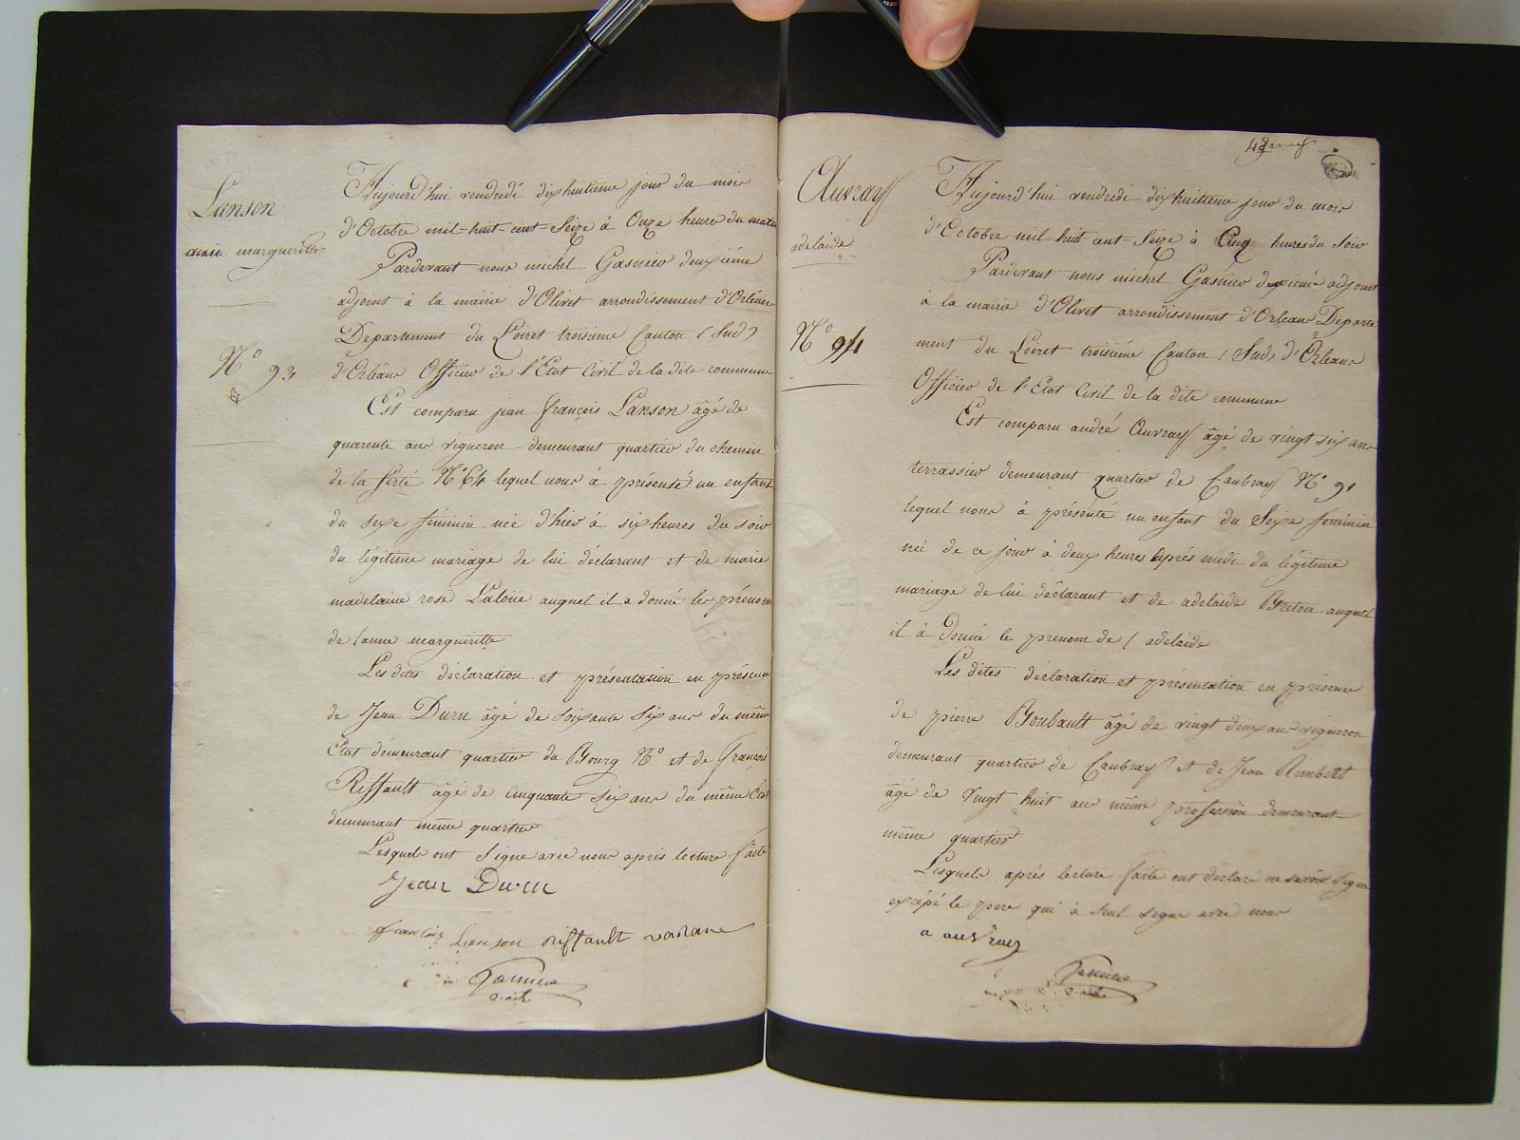 Lanson
anne margueritte
N° 93
Aujourd'hui vendredi dixhuitieme jour du mois
d'Octobre mil-huit-cent-Seize à Onze heures du matin
Pardevant nous michel Gasnier deuxième
adjoint à la mairie d'Olivet arrondissement d'Orléans
Departement du Loiret troisieme Canton (Sud)
d'Orléans Officier de l'Etat Civil de la dite commune
Est comparu jean françois Lanson âgé de
quarante ans vigneron demeurant quartier du chemin
de la ferté N° 64 lequel nous à présenté un enfant
du sexe féminin née d'hier à six heures du soir
du légitime mariage de lui déclarant et de marie
madelaine rose Laloue auquel il a donné les prénoms
de / anne margueritte
Les dites déclaration et présentation en présence
de Jean Duru âgé de soixante Six ans du même
Etat demeurant quartier du Bourg N° et de françois
Riffault âgé de cinquante Six ans du même Etat
demeurant même quartier
Lesquels ont Signé avec nous après lecture faite
Jean Duru
francois Lanson Riffault
Gasnier
adt
48
Auvray
adelaide
N° 94
Aujourd'hui vendredi dixhuitieme jour du mois
d'Octobre mil huit cent-Seize à Cinq heures du Soir
Pardevant nous michel Gasnier deuxieme adjoint
à la mairie d'Olivet arrondissement d'Orléans Departe
ment du Loiret troisième Canton (Sud) d'Orléans
Officier de l'Etat Civil de la dite commune
Est comparu andré Auvray âgé de vingt six ans
terrassier demeurant quartier de Caubray N° 91
lequel nous à présenté un enfant du Sexe féminin
née de ce jour à deux heures après midi du légitime
mariage de lui déclarant et de adelaide Breton auquel
il à Donné le prenom de / adelaide
Les dites déclaration et présentation en présence
de pierre Boubault âgé de vingt deux ans vigneron
demeurant quartier de Caubray et de Jean Rimbert
âgé de vingt huit ans même profession demeurant
même quartier
Lesquels après lecture faite ont déclaré ne savoir Signer
excépé le pere qui à Seul Signé avec nous
a auvray
Gasnier
adt